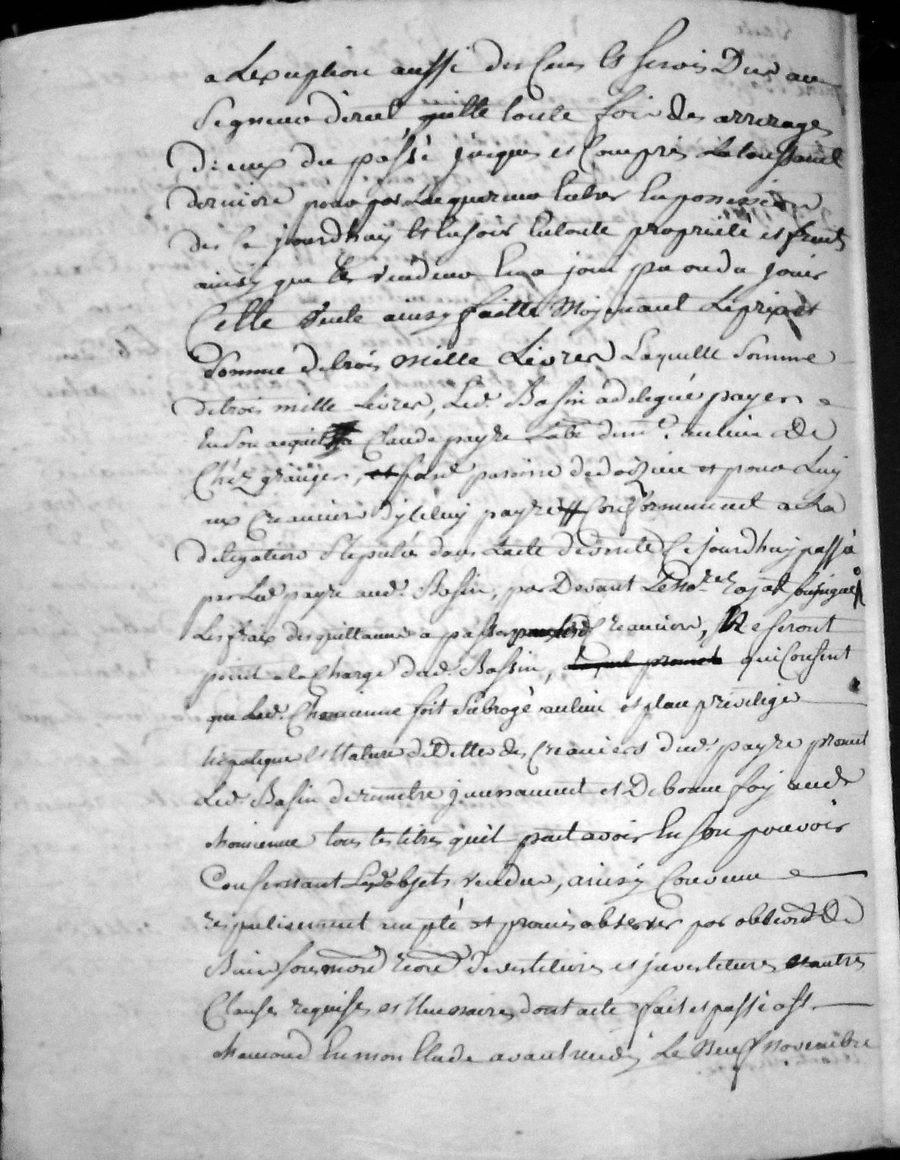 a Lexception aussi des Cens et servis Dus au
Seigneur direct quitte toute fois des arrerages
diceux du passé jusques et Compris La toussaint
derniere pour par Lacquereur Entrer En possession
des ce jourdhuy et En jouir En toute proprieté et fruits
ainsy que Le vendeur En a joui pu ou du jouir
Cette vente ainsy faitte Moyenant Le prix et
Somme de trois mille Livres Laquelle Somme
de trois mille Livres, Led. Bassin a delegué payer
En Son acquit a Claude payre
Chez granger, paroisse de et pour Luy
aux Creanciers dyceluy payre Conformement a La
delegation Stipulée dans Lacte de vente Ce jourdhuy passé
par Led. payre aud. Bassin, par Devant Le No.re royal soussigné
Les fraix des quittances a passer Creanciers, Ne seront
point a la Charge dud. Bassin, qui Consent
que Led. Chomienne soit Subrogé au lieu et place privilege
hipoteque et Nature de Dette des Creanciers dud. payre promet
Led. Bassin de remettre incessament et De bonne foy aud.
Chomienne tous les titres quil peut avoir En Son pouvoir
Concernant Lesd. objets vendus, ainsy Convenu
reciproquement accepté et promis observer par obligation de
Biens soumissions devestitures et investitures et autres
Clauses requises et Necessaires dont acte fait et passé a St.
chamond En mon Etude avant midy Le Neuf Novembre